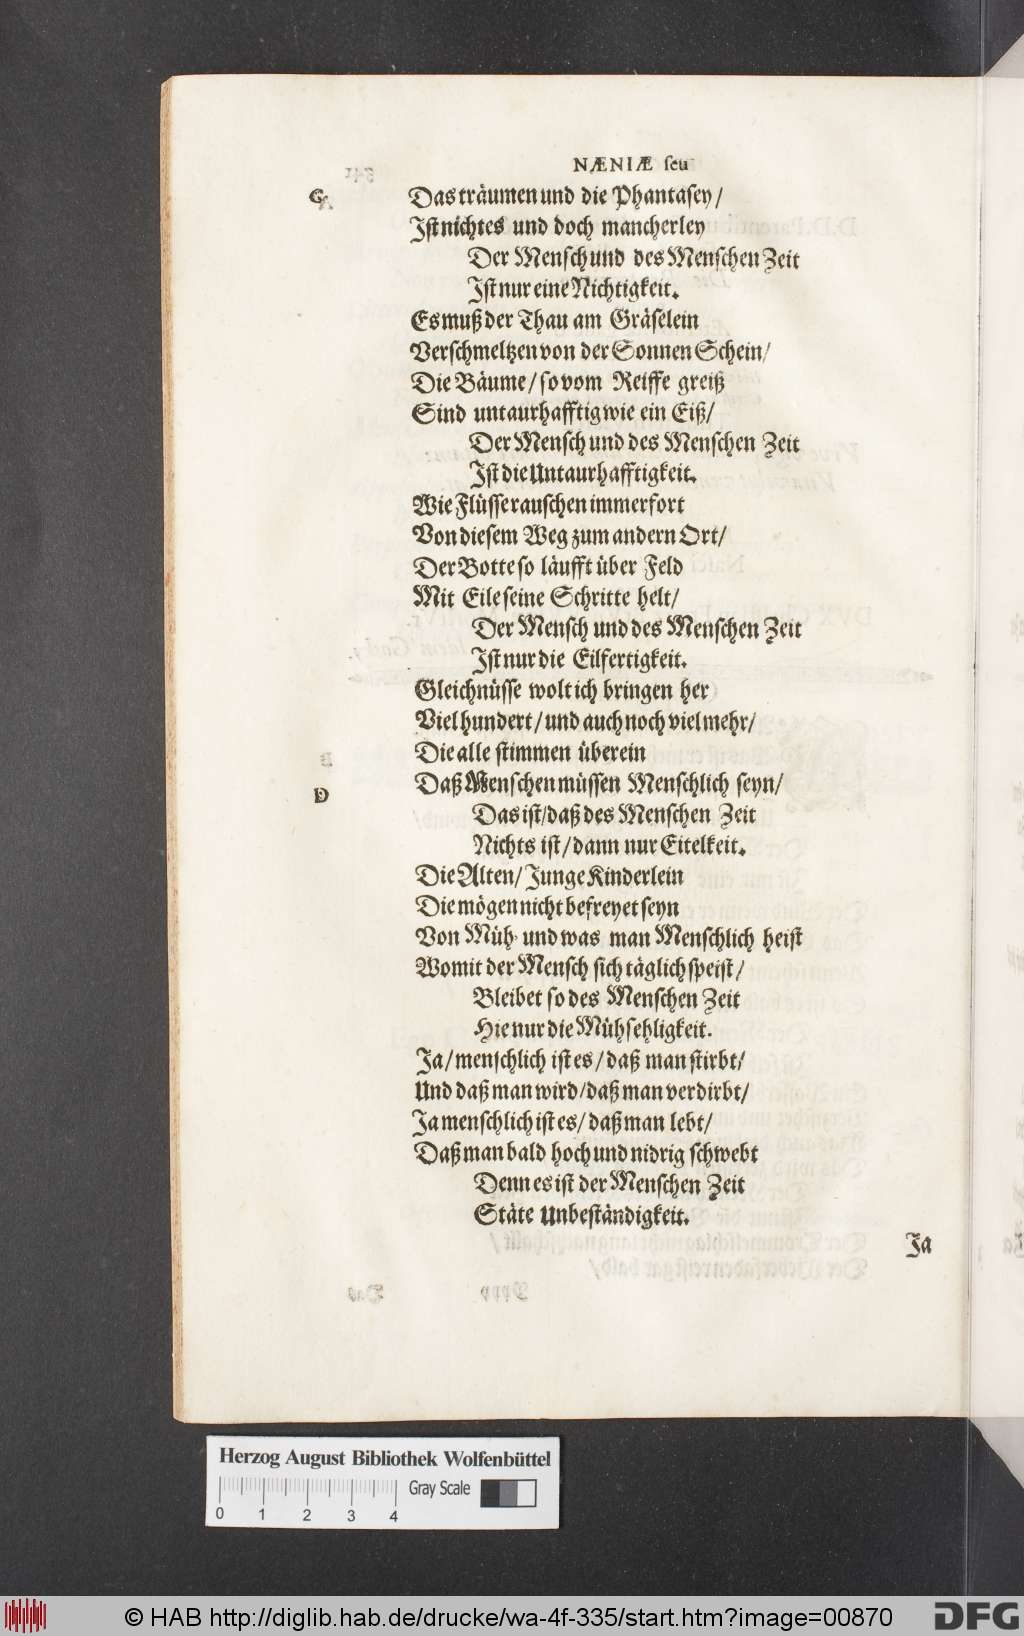 NÆNIÆ ſeu
G Das träumen und die Phantaſey /
Iſt nichtes und doch mancherley
Der Menſch und des Menſchen Zeit
Iſt nur eine Nichtigkeit.
Es muß der Thau am Gräſelein
Verſchmeltzen von der Sonnen Schein /
Die Bäume / ſo vom Reiffe greiß
Sind untaurhafftig wie ein Eiß /
Der Menſch und des Menſchen Zeit
Iſt die Untaurhafftigkeit.
Wie Flüſſe rauſchen immerfort
Von dieſem Weg zum andern Ort /
Der Botte ſo läufft über Feld
Mit Eile ſeine Schritte helt /
Der Menſch und des Menſchen Zeit
Iſt nur die Eilfertigkeit.
Gleichnüſſe wolt ich bringen her
Viel hundert / und auch noch viel mehr /
Die alle ſtimmen überein
D Daß Menſchen müſſen Menſchlich ſeyn /
Das iſt / daß des Menſchen Zeit
Nichts iſt / dann nur Eitelkeit.
Die Alten / Junge Kinderlein
Die mögen nicht befreyet ſeyn
Von Müh und was man Menſchlich heiſt
Womit der Menſch ſich täglich ſpeiſt /
Bleibet ſo des Menſchen Zeit
Hie nur die Mühſehligkeit.
Ja / menſchlich iſt es / daß man ſtirbt /
Und daß man wird / daß man verdirbt /
Ja menſchlich iſt es / daß man lebt /
Daß man bald hoch und nidrig ſchwebt
Denn es iſt der Menſchen Zeit
Stäte Unbeſtändigkeit.
Ja
Herzog August Bibliothek Wolfenbüttel
Gray Scale
0 1 2 3 4
© HAB http://diglib.hab.de/drucke/wa-4f-335/start.htm?image=00870
DFG